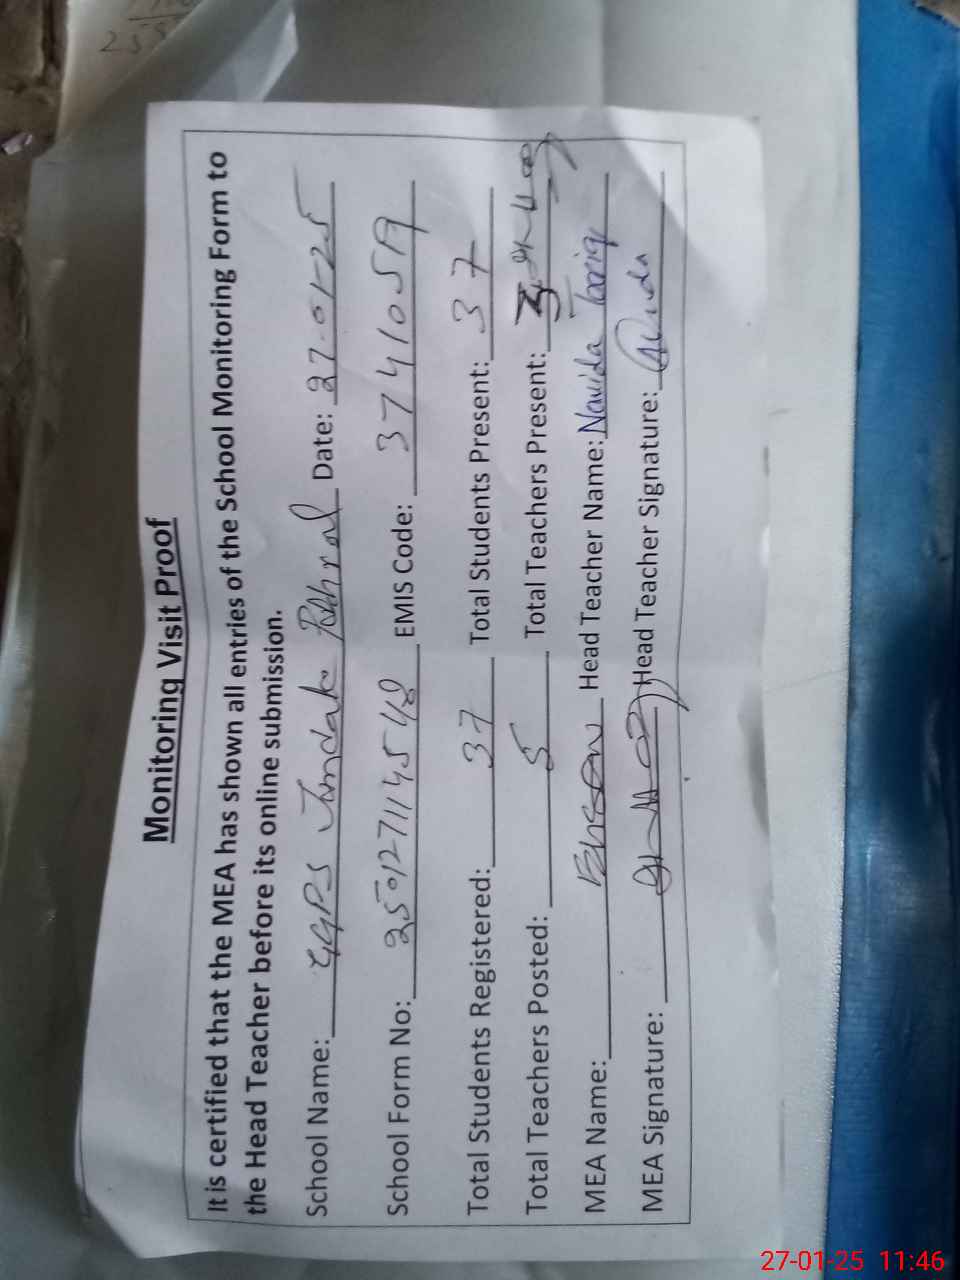 Monitoring Visit Proof
It is certified that the MEA has shown all entries of the School Monitoring Form to
the Head Teacher before its online submission.
School Name: GGPS Jandak Date: 27-01-25
School Form No: EMIS Code:
Total Students Registered: 37 Total Students Present: 37
Total Teachers Posted: 5 Total Teachers Present:
MEA Name: Head Teacher Name: Navida Tariq
MEA Signature: Head Teacher Signature:
27-01-25 11:46